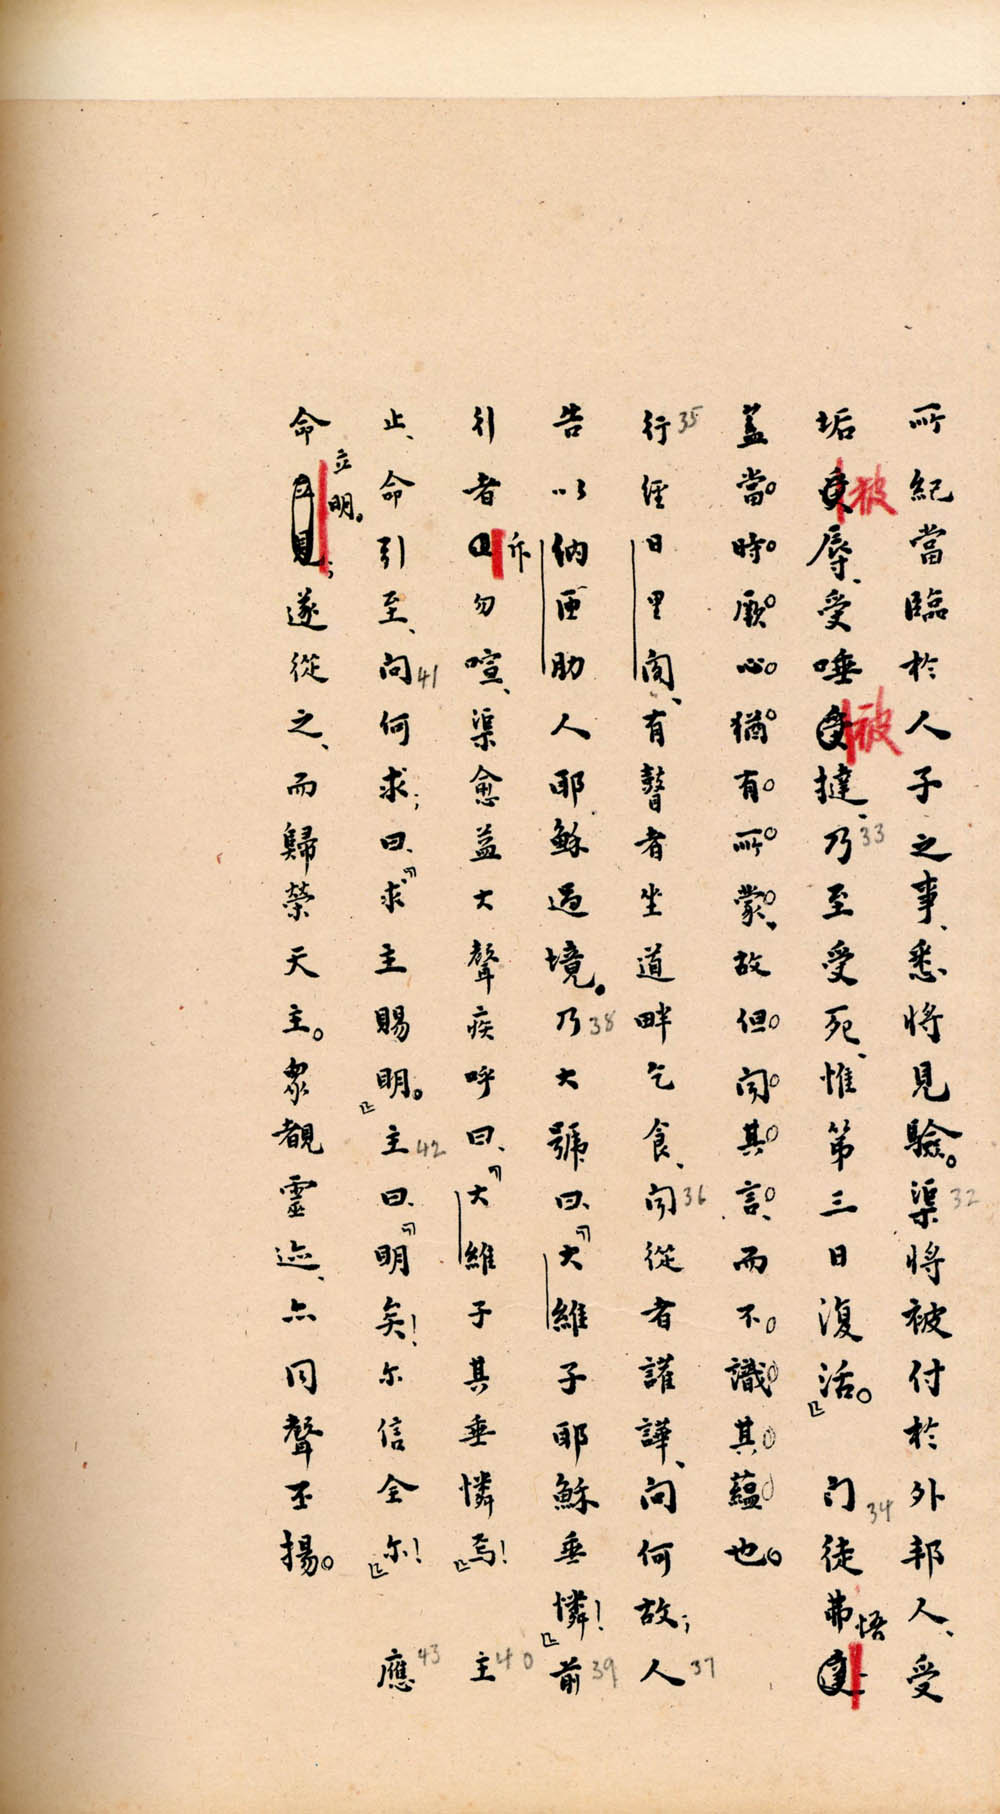 所紀當臨於人子之事、悉將見驗。渠32將被付於外邦人、受
垢被辱、受唾被撻、乃33至受死、惟第三日復活。』門34徒弗悟
蓋當時厥心猶有所蒙、故但聞其言、而不識其蘊也。
行35經日里閣、有瞽者坐道畔乞食、聞36從者讙譁、問何故;人37
告以納匝肋人耶穌過境。乃38大號曰、『大維子耶穌垂憐!』前39
引者斥勿喧、渠愈益大聲疾呼曰、『大維子其垂憐焉!』主40
止、命引至、問41何求;曰、『求主賜明。』主42曰、『明矣!尔信全尔!』應43
命立明。遂從之、而歸榮天主。眾覩靈迹、亦同聲丕揚。